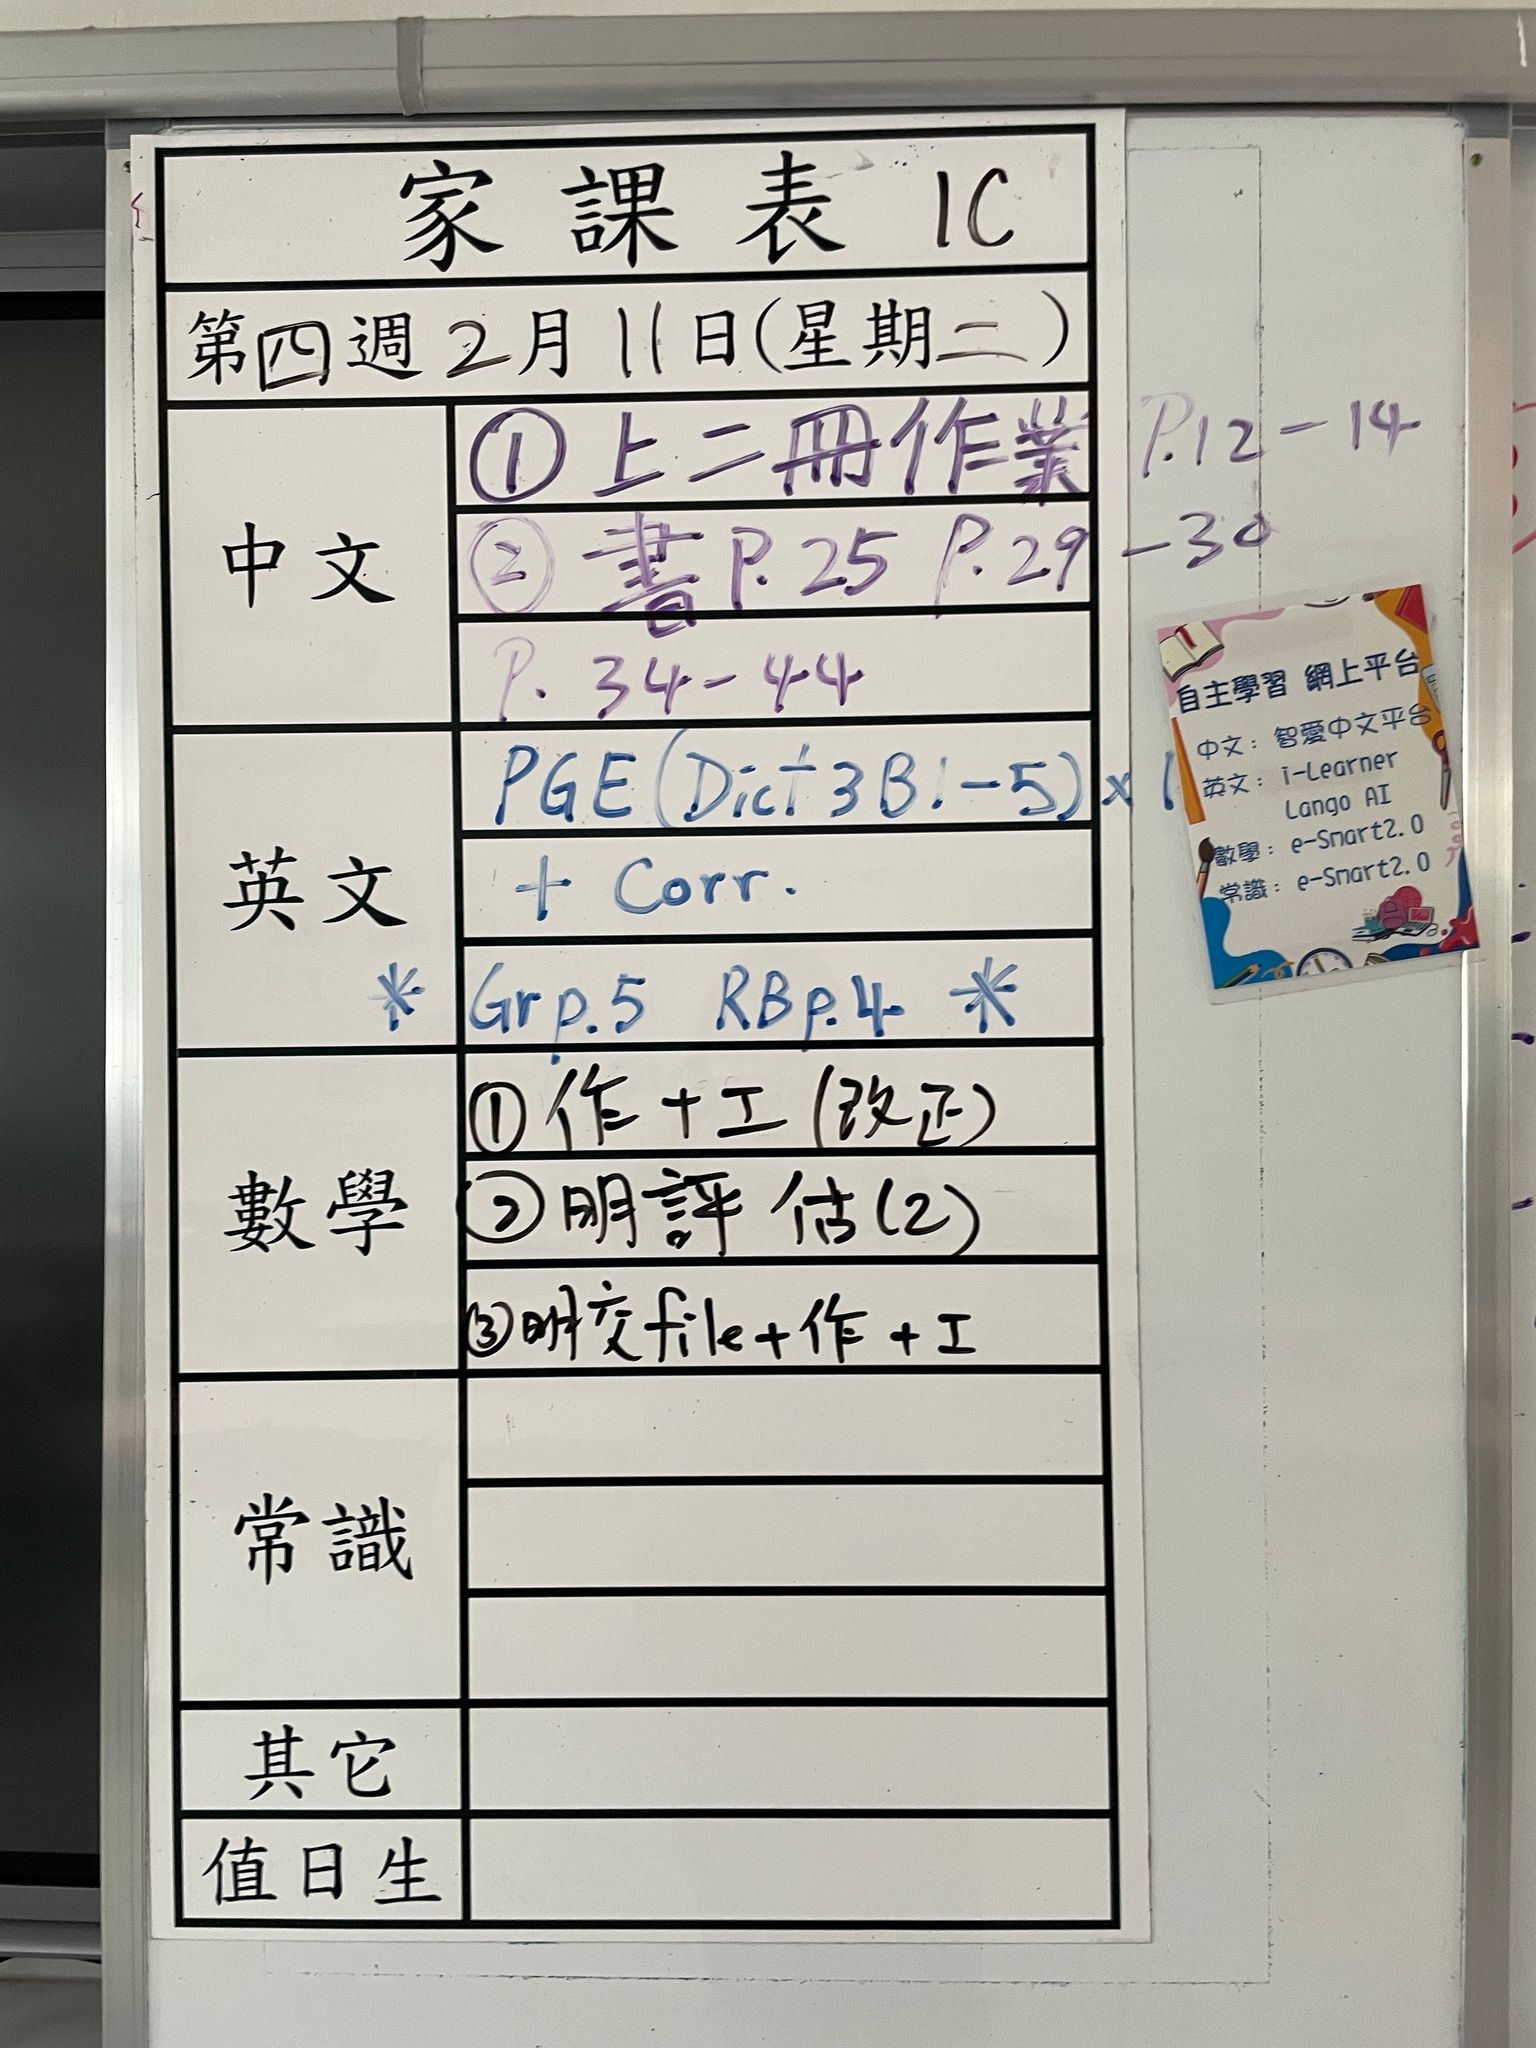 家課表 1C
第四週2月11日(星期二)
中文
① 上二冊作業 P.12-14
② 書 P.25 P.29-30
P. 34-44
英文
PGE (Dict 3B1-5) x 1
+ Corr.
* Gr p.5 RB p.4 *
數學
① 作 + 工 (改正)
② 明評估(2)
③ 明交file + 作 + 工
常識
其它
值日生
自主學習 網上平台
中文: 智愛中文平台
英文: i-Learner
Lango AI
數學: e-Smart2.0
常識: e-Smart2.0